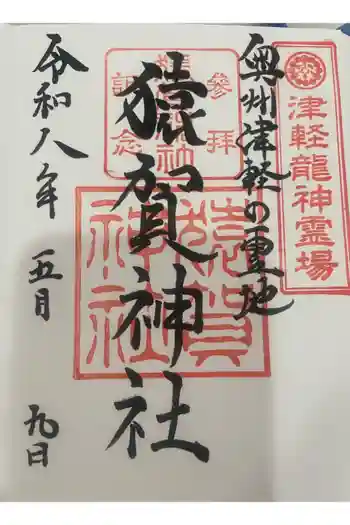 津軽龍神霊場
奥州津軽の霊地
参拝
猿賀神社
記念
猿賀神社
猿賀神社
令和八年
五月
九日